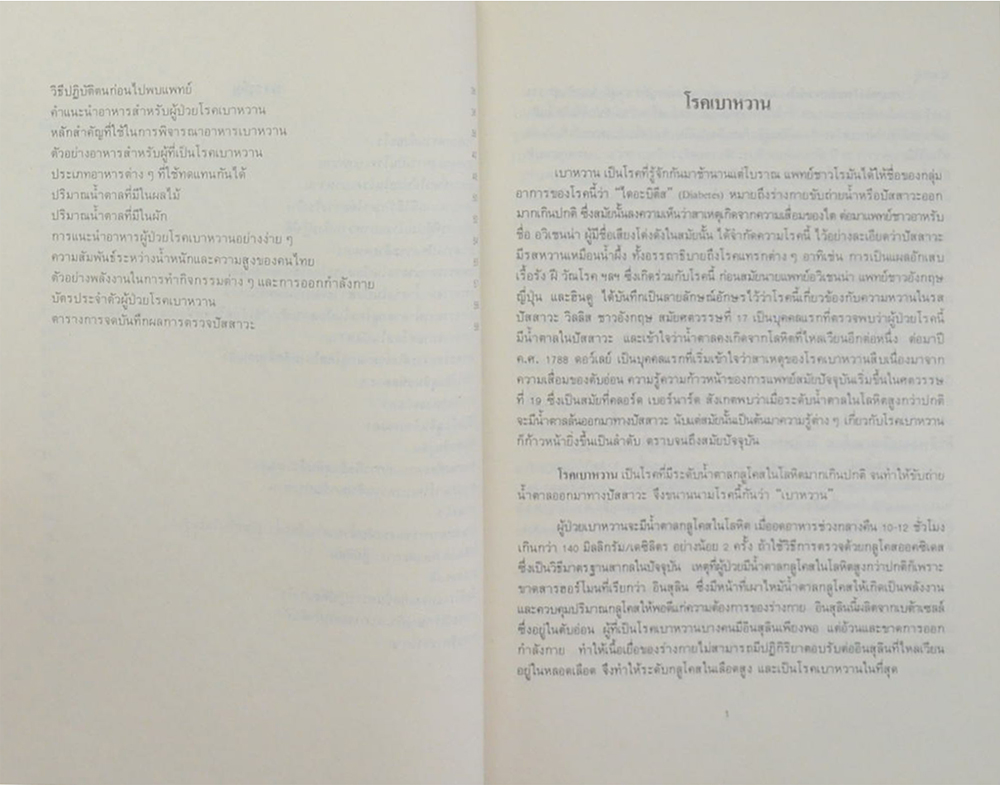 วิธีปฏิบัติตนก่อนไปพบแพทย์
คำแนะนำอาหารสำหรับผู้ป่วยโรคเบาหวาน
หลักสำคัญที่ใช้ในการพิจารณาอาหารเบาหวาน
ตัวอย่างอาหารสำหรับผู้ที่เป็นโรคเบาหวาน
ประเภทอาหารต่าง ๆ ที่ใช้ทดแทนกันได้
ปริมาณน้ำตาลที่มีในผลไม้
ปริมาณน้ำตาลที่มีในผัก
การแนะนำอาหารผู้ป่วยโรคเบาหวานอย่างง่าย ๆ
ความสัมพันธ์ระหว่างน้ำหนักและความสูงของคนไทย
ตัวอย่างพลังงานในการทำกิจกรรมต่าง ๆ และการออกกำลังกาย
บัตรประจำตัวผู้ป่วยโรคเบาหวาน
ตารางการจดบันทึกผลการตรวจปัสสาวะ
โรคเบาหวาน
เบาหวาน เป็นโรคที่รู้จักกันมาช้านานแต่โบราณ แพทย์ชาวโรมันได้ให้ชื่อของกลุ่ม
อาการของโรคนี้ว่า "ไดอะบิตีส" (Diabetes) หมายถึงร่างกายขับถ่ายน้ำหรือปัสสาวะออก
มากเกินปกติ ซึ่งสมัยนั้นลงความเห็นว่าสาเหตุเกิดจากความเสื่อมของไต ต่อมาแพทย์ชาวอาหรับ
ชื่อ อวิเซนน่า ผู้มีชื่อเสียงโด่งดังในสมัยนั้น ได้จำกัดความโรคนี้ ไว้อย่างละเอียดว่าปัสสาวะ
มีรสหวานเหมือนน้ำผึ้ง ทั้งอรรถาธิบายถึงโรคแทรกต่าง ๆ อาทิเช่น การเป็นแผลอักเสบ
เรื้อรัง ฝี วัณโรค ฯลฯ ซึ่งเกิดร่วมกับโรคนี้ ก่อนสมัยนายแพทย์อวิเซนน่า แพทย์ชาวอังกฤษ
ญี่ปุ่น และฮินดู ได้บันทึกเป็นลายลักษณ์อักษรไว้ว่าโรคนี้เกี่ยวข้องกับความหวานในรส
ปัสสาวะ วิลลิส ชาวอังกฤษ สมัยศตวรรษที่ 17 เป็นบุคคลแรกที่ตรวจพบว่าผู้ป่วยโรคนี้
มีน้ำตาลในปัสสาวะ และเข้าใจว่าน้ำตาลคงเกิดจากโลหิตที่ไหลเวียนอีกต่อหนึ่ง ต่อมาปี
ค.ศ. 1788 คอว์เลย์ เป็นบุคคลแรกที่เริ่มเข้าใจว่าสาเหตุของโรคเบาหวานสืบเนื่องมาจาก
ความเสื่อมของตับอ่อน ความรู้ความก้าวหน้าของการแพทย์สมัยปัจจุบันเริ่มขึ้นในศตวรรษ
ที่ 19 ซึ่งเป็นสมัยที่คลอร์ด เบอร์นาร์ด สังเกตพบว่าเมื่อระดับน้ำตาลในโลหิตสูงกว่าปกติ
จะมีน้ำตาลล้นออกมาทางปัสสาวะ นับแต่สมัยนั้นเป็นต้นมาความรู้ต่าง ๆ เกี่ยวกับโรคเบาหวาน
ก็ก้าวหน้ายิ่งขึ้นเป็นลำดับ ตราบจนถึงสมัยปัจจุบัน
โรคเบาหวาน เป็นโรคที่มีระดับน้ำตาลกลูโคสในโลหิตมากเกินปกติ จนทำให้ขับถ่าย
น้ำตาลออกมาทางปัสสาวะ จึงขนานนามโรคนี้กันว่า "เบาหวาน"
ผู้ป่วยเบาหวานจะมีน้ำตาลกลูโคสในโลหิต เมื่ออดอาหารช่วงกลางคืน 10-12 ชั่วโมง
เกินกว่า 140 มิลลิกรัม/เดซิลิตร อย่างน้อย 2 ครั้ง ถ้าใช้วิธีการตรวจด้วยกลูโคสออคซิเดส
ซึ่งเป็นวิธีมาตรฐานสากลในปัจจุบัน เหตุที่ผู้ป่วยมีน้ำตาลกลูโคสในโลหิตสูงกว่าปกติก็เพราะ
ขาดสารฮอร์โมนที่เรียกว่า อินสุลิน ซึ่งมีหน้าที่เผาไหม้น้ำตาลกลูโคสให้เกิดเป็นพลังงาน
และควบคุมปริมาณกลูโคสให้พอดีแก่ความต้องการของร่างกาย อินสุลินนี้ผลิตจากเบต้าเซลล์
ซึ่งอยู่ในตับอ่อน ผู้ที่เป็นโรคเบาหวานบางคนมีอินสุลินเพียงพอ แต่อ้วนและขาดการออก
กำลังกาย ทำให้เนื้อเยื่อของร่างกายไม่สามารถมีปฏิกิริยาตอบรับต่ออินสุลินที่ไหลเวียน
อยู่ในหลอดเลือด จึงทำให้ระดับกลูโคสในเลือดสูง และเป็นโรคเบาหวานในที่สุด
1